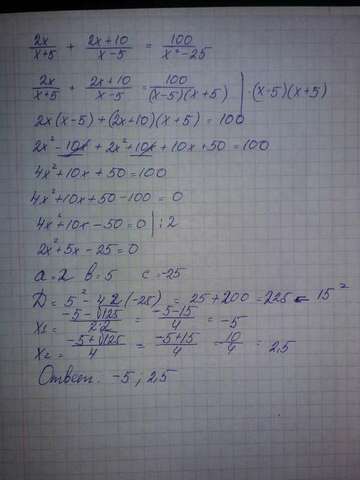 2x/(x+5) + (2x+10)/(x-5) = 100/(x²-25)
2x/(x+5) + (2x+10)/(x-5) = 100/((x-5)(x+5)) | ·(x-5)(x+5)
2x(x-5) + (2x+10)(x+5) = 100
2x² - 10x + 2x² + 10x + 10x + 50 = 100
4x² + 10x + 50 = 100
4x² + 10x + 50 - 100 = 0
4x² + 10x - 50 = 0 | : 2
2x² + 5x - 25 = 0
a = 2 b = 5 c = -25
D = 5² - 4·2·(-25) = 25 + 200 = 225 = 15²
x₁ = (-5-√125)/(2·2) = (-5-15)/4 = -5
x₂ = (-5+√125)/4 = (-5+15)/4 = 10/4 = 2,5
Ответ: -5 ; 2,5